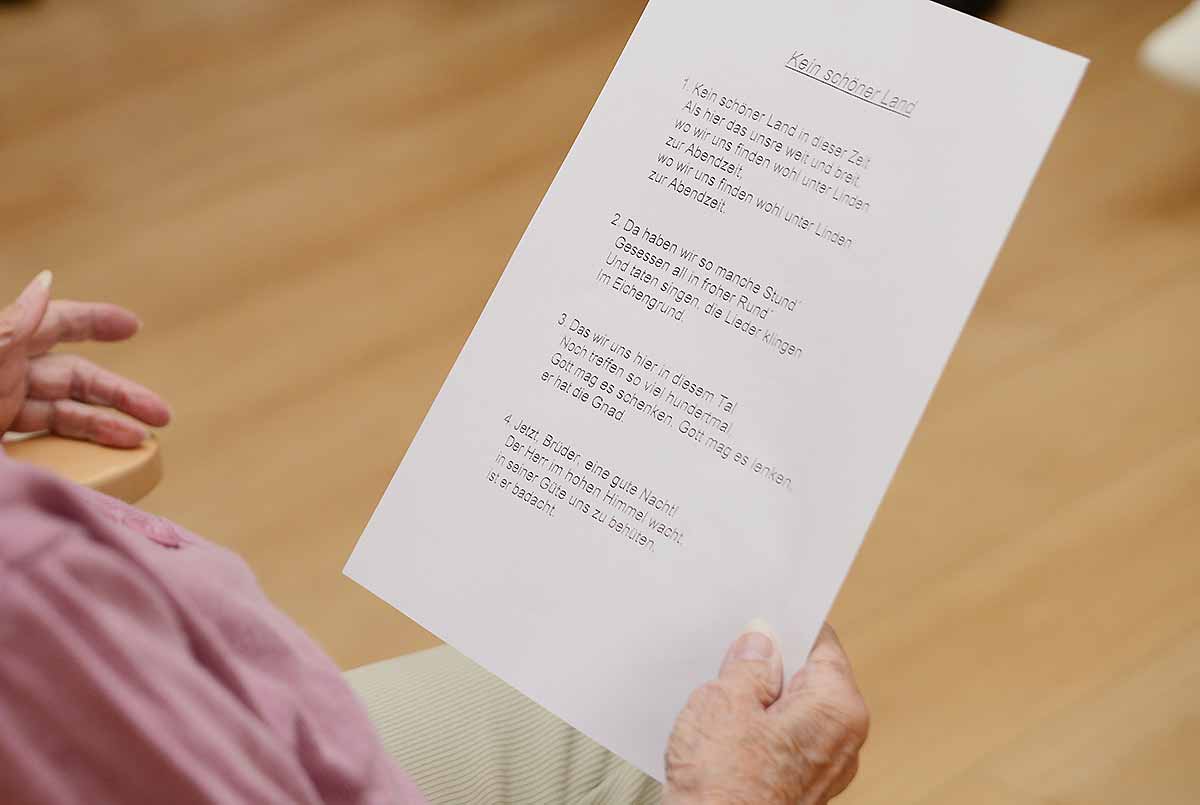 Kein schöner Land
1. Kein schöner Land in dieser Zeit
Als hier das unsre weit und breit.
wo wir uns finden wohl unter Linden
zur Abendzeit,
wo wir uns finden wohl unter Linden
zur Abendzeit.
2. Da haben wir so manche Stund´
Gesessen all in froher Rund´
Und taten singen, die Lieder klingen
Im Eichengrund.
3. Das wir uns hier in diesem Tal
Noch treffen so viel hundertmal,
Gott mag es schenken, Gott mag es lenken,
er hat die Gnad.
4. Jetzt, Brüder, eine gute Nacht!
Der Herr im hohen Himmel wacht,
in seiner Güte uns zu behüten,
ist er badacht.